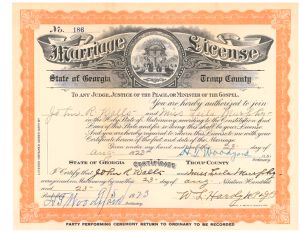 No. 186
Marriage License
State of Georgia Troup County
TO ANY JUDGE, JUSTICE OF THE PEACE, OR MINISTER OF THE GOSPEL.
You are hereby authorized to join
John R. Wells and Miss Lula Murphy
in the Holy State of Matrimony according to the Constitution and
Laws of this State and for so doing this shall be your License.
And you are hereby required to return this License to me with your
Certificate hereon of the fact and date of the Marriage.
Given under my hand and seal this 23 day of
Aug 1923
STATE OF GEORGIA CERTIFICATE TROUP COUNTY
I Certify that John R. Wells and Miss Lula Murphy
were joined in Matrimony by me this 23 day of Aug Nineteen Hundred
and 23
Recorded 1923
PARTY PERFORMING CEREMONY RETURN TO ORDINARY TO BE RECORDED